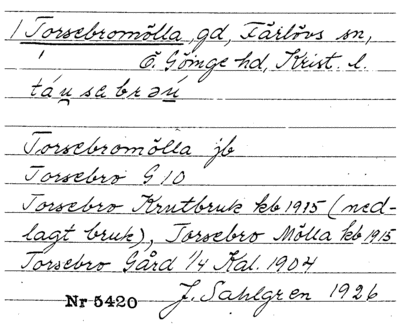 1 Torsebromölla, gd, Färlövs sn,
Ö. Göinge hd, Krist. l.
Torsebromölla jb
Torsebro G 10
Torsebro Krutbruk kb 1915 (ned-
lagt bruk), Torsebro Mölla kb 1915
Torsebro Gård 1/4 Kal. 1904
Nr 5420 J. Sahlgren 1926